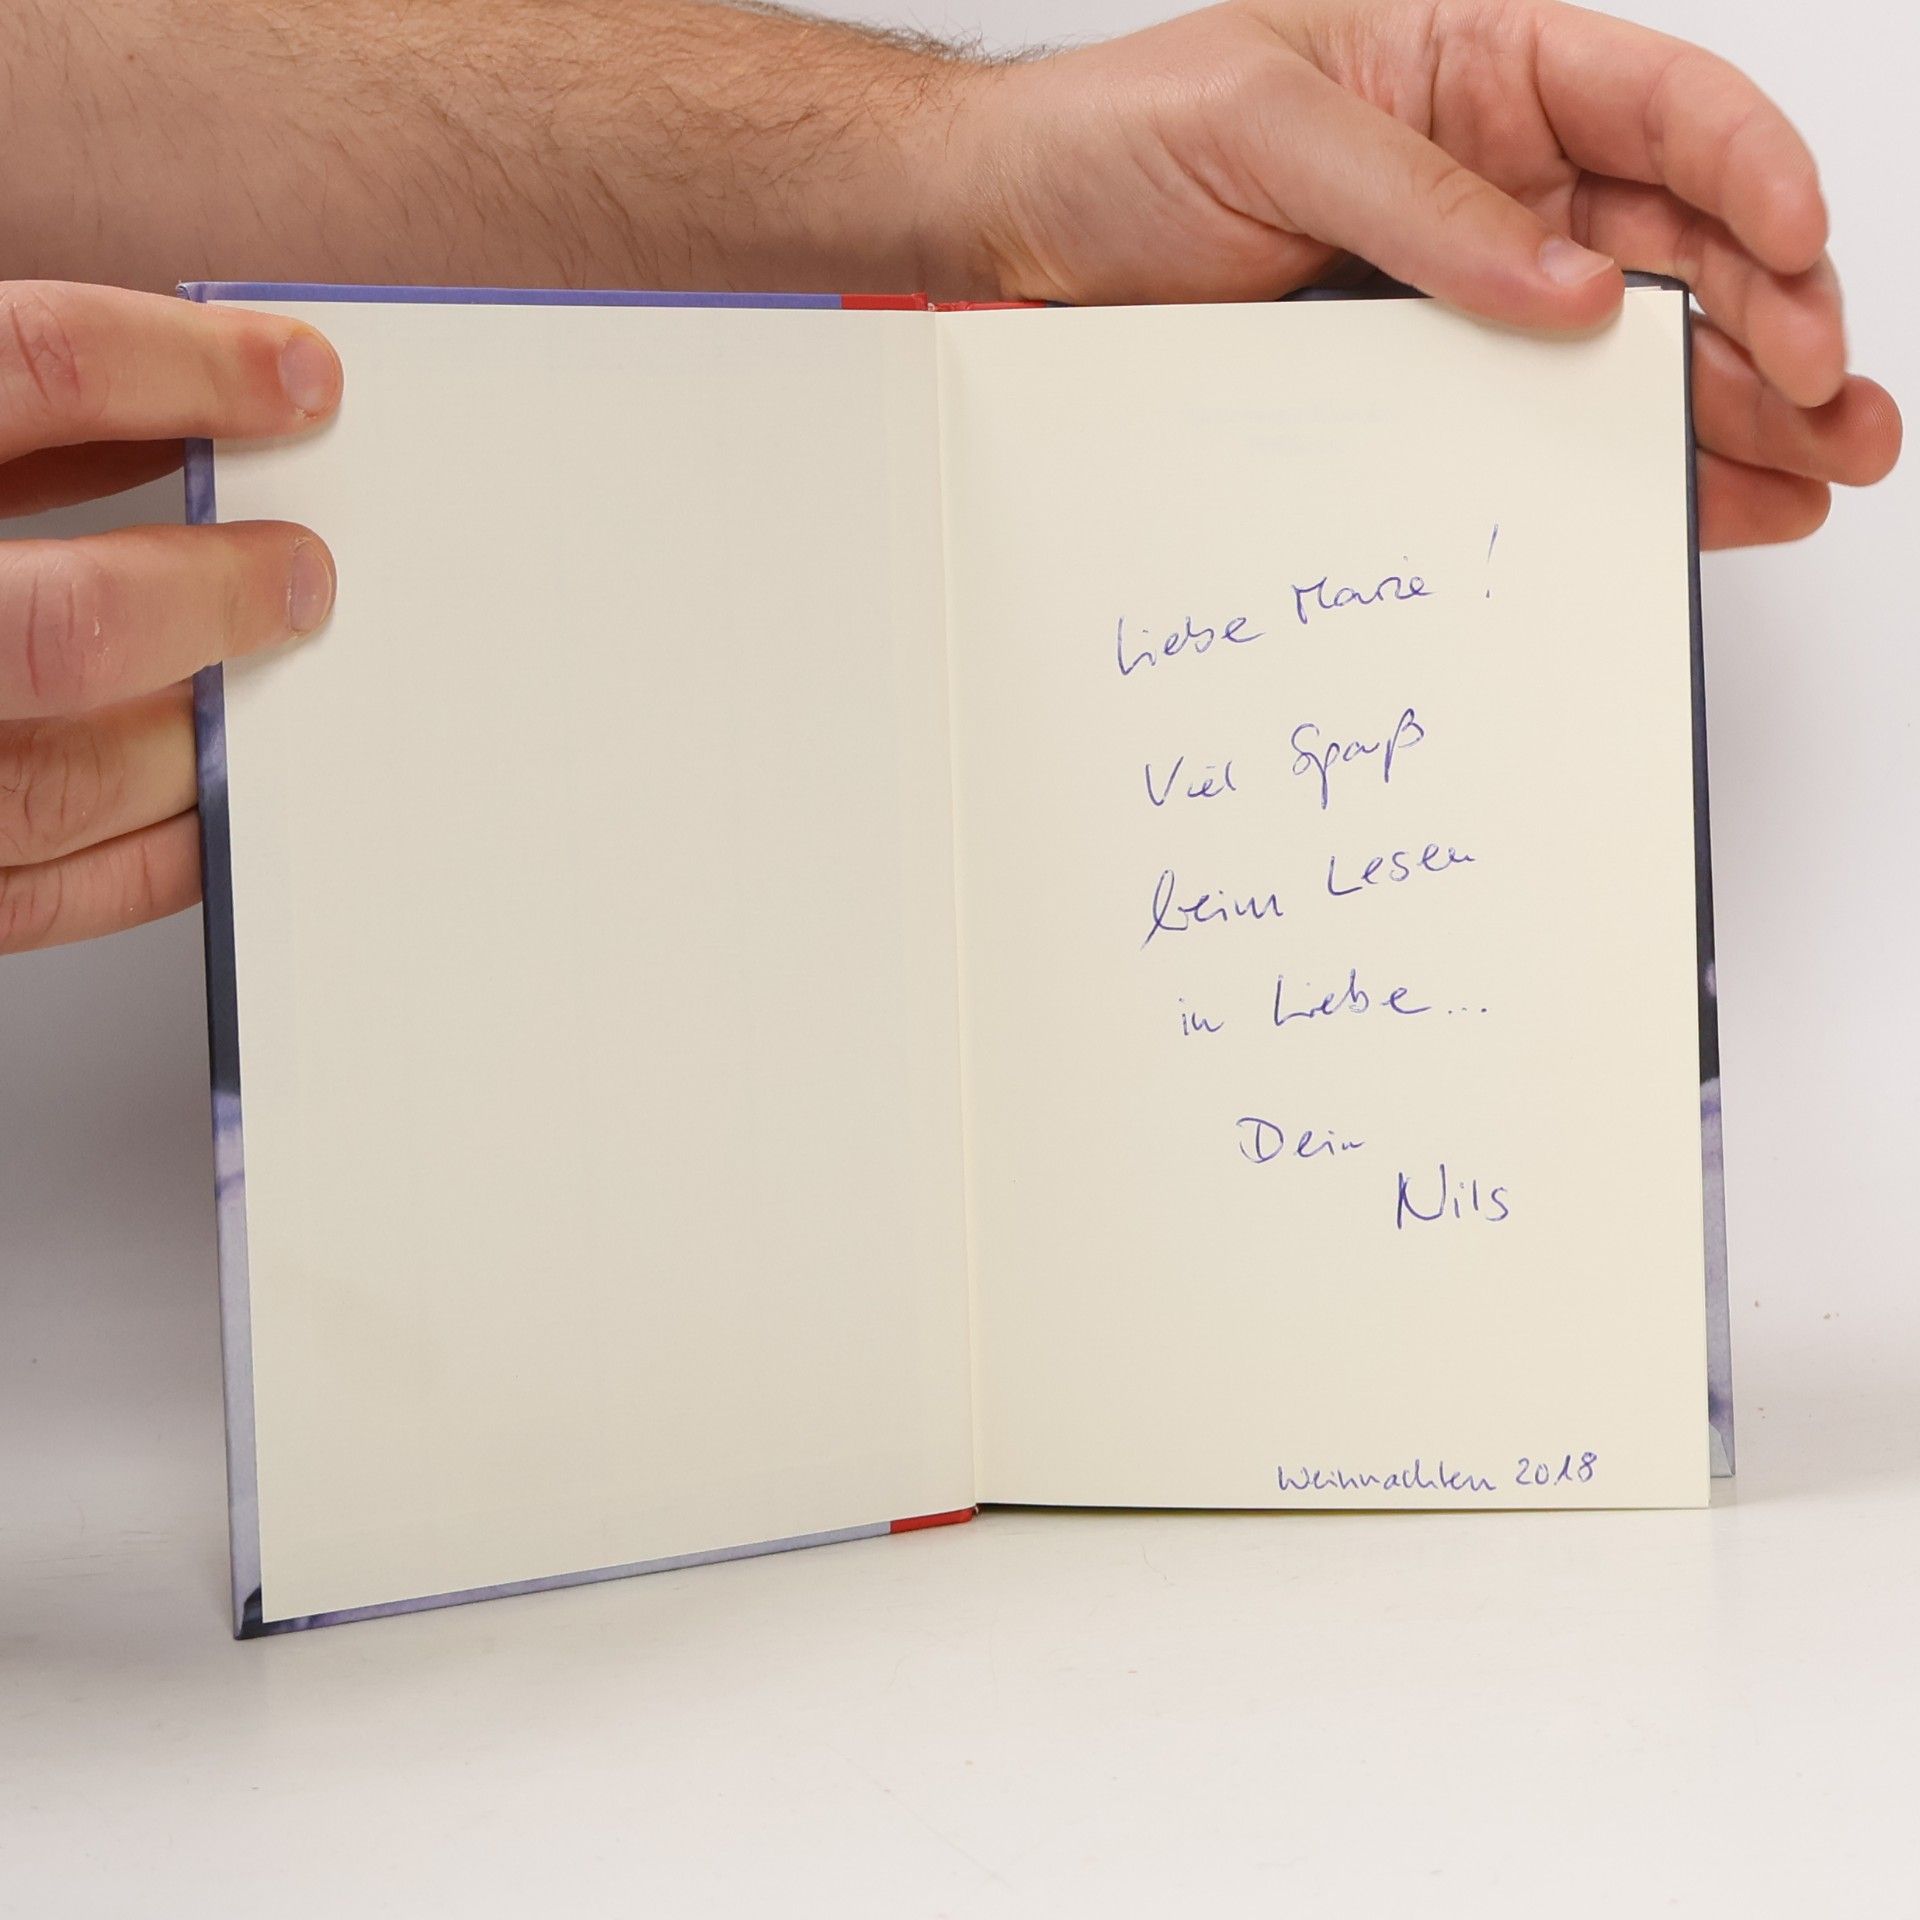 Liebe Marie !
Viel Spaß
beim Lesen
in Liebe...
Dein
Nils
Weihnachten 2018